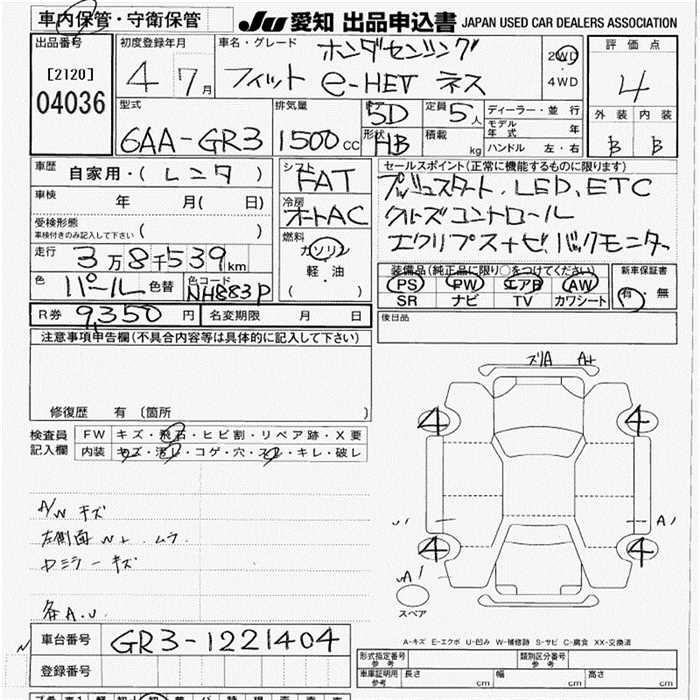 車内保管・守衛保管
JU 愛知 出品申込書 JAPAN USED CAR DEALERS ASSOCIATION
出品番号
[2120]
04036
初度登録年月
4 7月
車名・グレード
ホンダセンシング
フィット e-HEV ネス
2WD
4WD
評価点
4
外装 内装
B B
型式
6AA-GR3
排気量
1500cc
ドア
5D
定員
5人
形状
HB
積載
kg
ディーラー・並行
モデル年式 年
ハンドル 左・右
車歴
自家用・(レンタ)
車検
年 月( 日)
受検形態
車検付きのみ記入して下さい ( )
走行
3万8千539km
色
パール 色替
色コード
NH883P
シフト
FAT
冷房
オートAC
燃料
ガソリン
軽・油
( )
セールスポイント(正常に機能するものに限ります)
プッシュスタート、LED、ETC
クルーズコントロール
エクリプスナビ バックモニター
装備品(純正品に限り○をつけてください)
PS PW エアB AW
SR ナビ TV カワシート
新車保証書
有・無
R券 9,350円
名変期限 月 日
後日品
注意事項申告欄(不具合内容等は具体的に記入して下さい)
修復歴 有 (箇所 )
検査員
記入欄
FW キズ・飛石・ヒビ割・リペア跡・X要
内装 キズ・汚レ・コゲ・穴・スレ・キレ・破レ
A/W キズ
左側面 ムラ
ドミラーキズ
各A.U
ズリA A+
4 4
A1
4 4
A1
スペア
A-キズ E-エクボ U-凹み W-補修跡 S-サビ C-腐食 XX-交換済
車台番号
GR3-1221404
登録番号
形式指定番号
参考
類別区分番号
参考
車庫証明用
参考
長さ cm 幅 cm 高さ cm